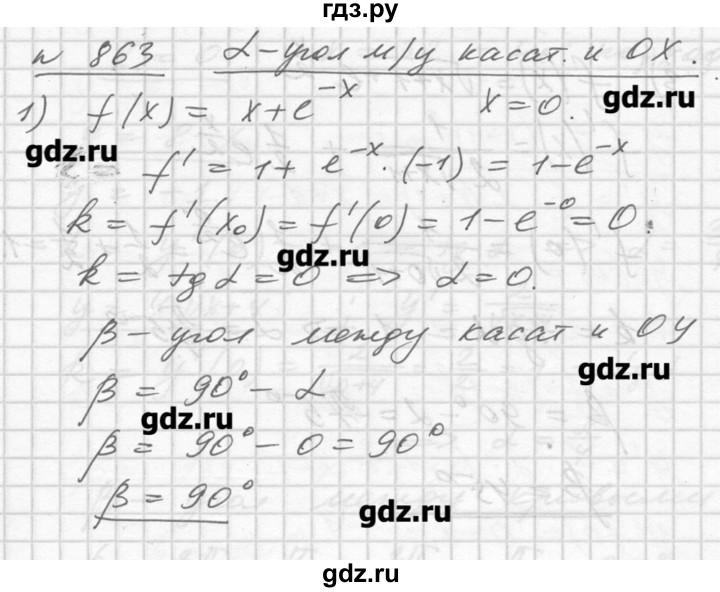 гдз.ру
n 863 α-угол м/у касат. и OX.
1) f(x) = x+e^{-x} x=0.
gdz.ru
gdz.ru
f' = 1+ e^{-x}·(-1) = 1-e^{-x}
k = f'(x₀) = f'(0) = 1-e^{-0} = 0.
gdz.ru
k = tg α = 0 => α = 0.
β - угол между касат и OY
gdz.ru
β = 90° - α
gdz.ru
β = 90° - 0 = 90°
β = 90°
gdz.ru
gdz.ru